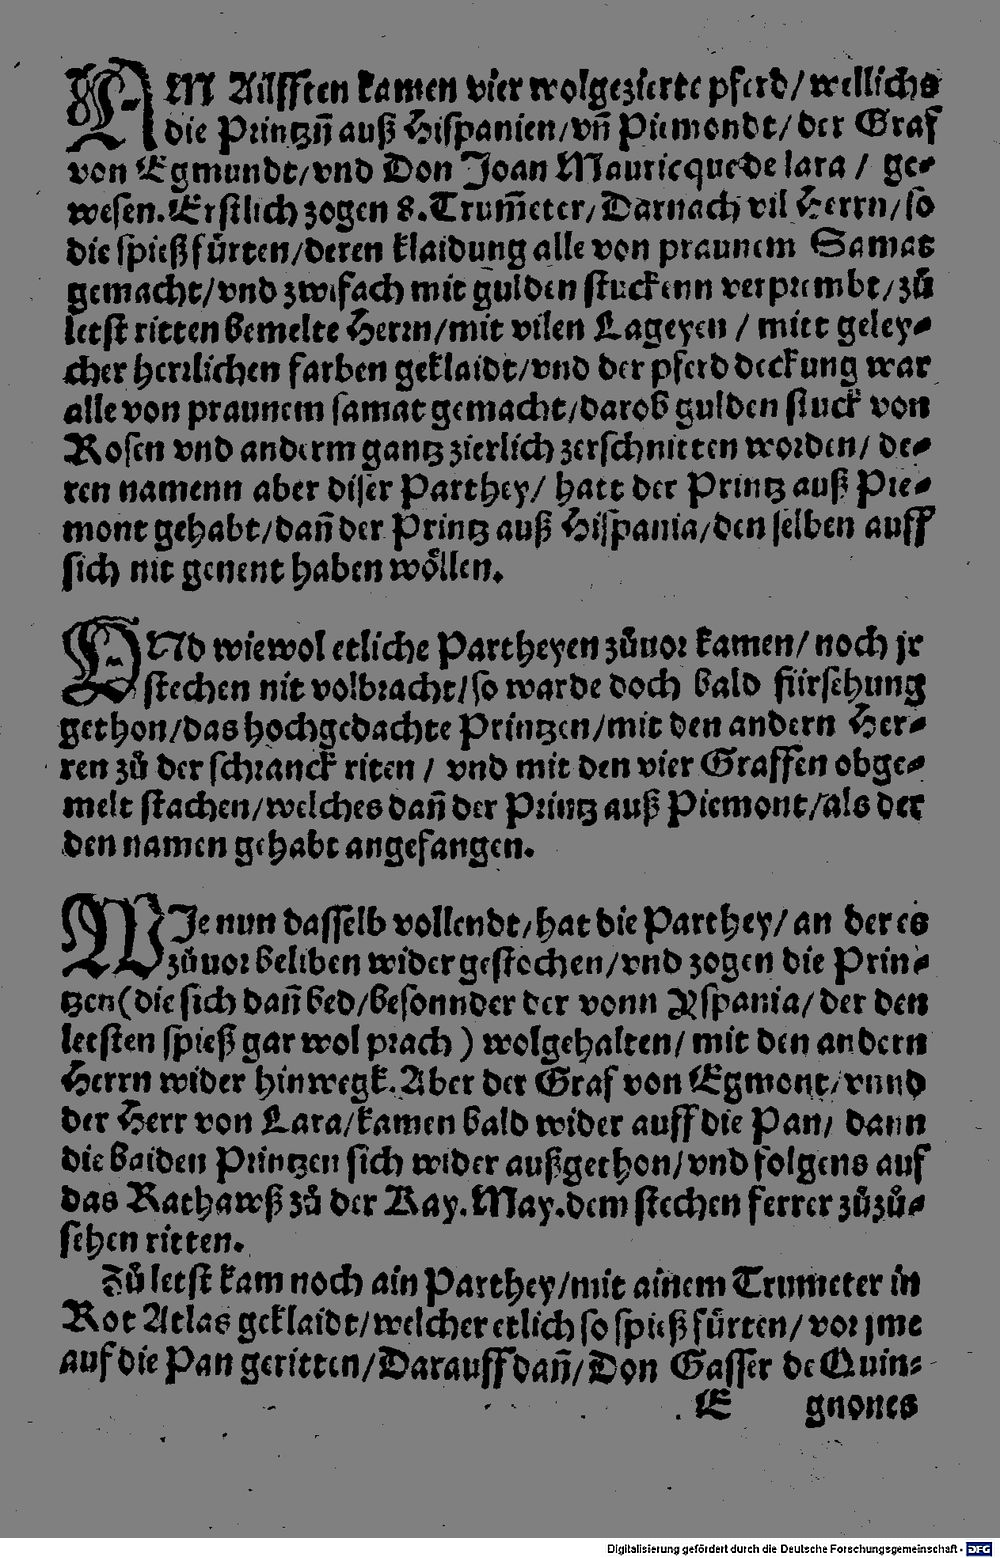 AM Ailfften kamen vier wolgezierte pferd/ wellichs
die Printzn̄ auß Hispanien/vn̄ Piemondt/ der Graf
von Egmundt/vnd Don Joan Mauricque de lara / ge⸗
wesen. Erstlich zogen 8. Trum̄eter/ Darnach vil Herrn/ so
die spieß fürten/deren klaidung alle von praunem Samat
gemacht/vnd zwifach mit gulden stuckenn verprembt/ zů
letst ritten bemelte Herrn/mit vilen Lageyen / mitt geley⸗
cher herrlichen farben geklaidt/vnd der pferd deckung war
alle von praunem samat gemacht/darob gulden stuck von
Rosen vnd anderm gantz zierlich zerschnitten worden/ de⸗
ren namenn aber diser Parthey/ hatt der Printz auß Pie⸗
mont gehabt/dan̄ der Printz auß Hispania/den selben auff
sich nit genent haben wöllen.
VNd wiewol etliche Partheyen zůuor kamen/ noch jr
stechen nit volbracht/so warde doch bald fürsehung
gethon/das hochgedachte Printzen/mit den andern Her⸗
ren zů der schranck riten / vnd mit den vier Graffen obge⸗
melt stachen/welches dan̄ der Printz auß Piemont/als der
den namen gehabt angefangen.
WJe nun dasselb vollendt/hat die Parthey/ an der es
zůuor beliben wider gestochen/vnd zogen die Prin⸗
tzen(die sich dan̄ bed/besonnder der vonn Yspania/ der den
letsten spieß gar wol prach) wolgehalten/ mit den andern
Herrn wider hinwegk. Aber der Graf von Egmont/vnnd
der Herr von Lara/kamen bald wider auff die Pan/ dann
die baiden Printzen sich wider außgethon/vnd folgens auf
das Rathawß zů der Kay. May. dem stechen ferrer zůzů⸗
sehen ritten.
Zů letst kam noch ain Parthey/mit ainem Trumeter in
Rot Atlas geklaidt/welcher etlich so spieß fürten/ vor jme
auf die Pan geritten/Darauff dan̄/Don Gasser de Quin⸗
E gnones
Digitalisierung gefördert durch die Deutsche Forschungsgemeinschaft - DFG